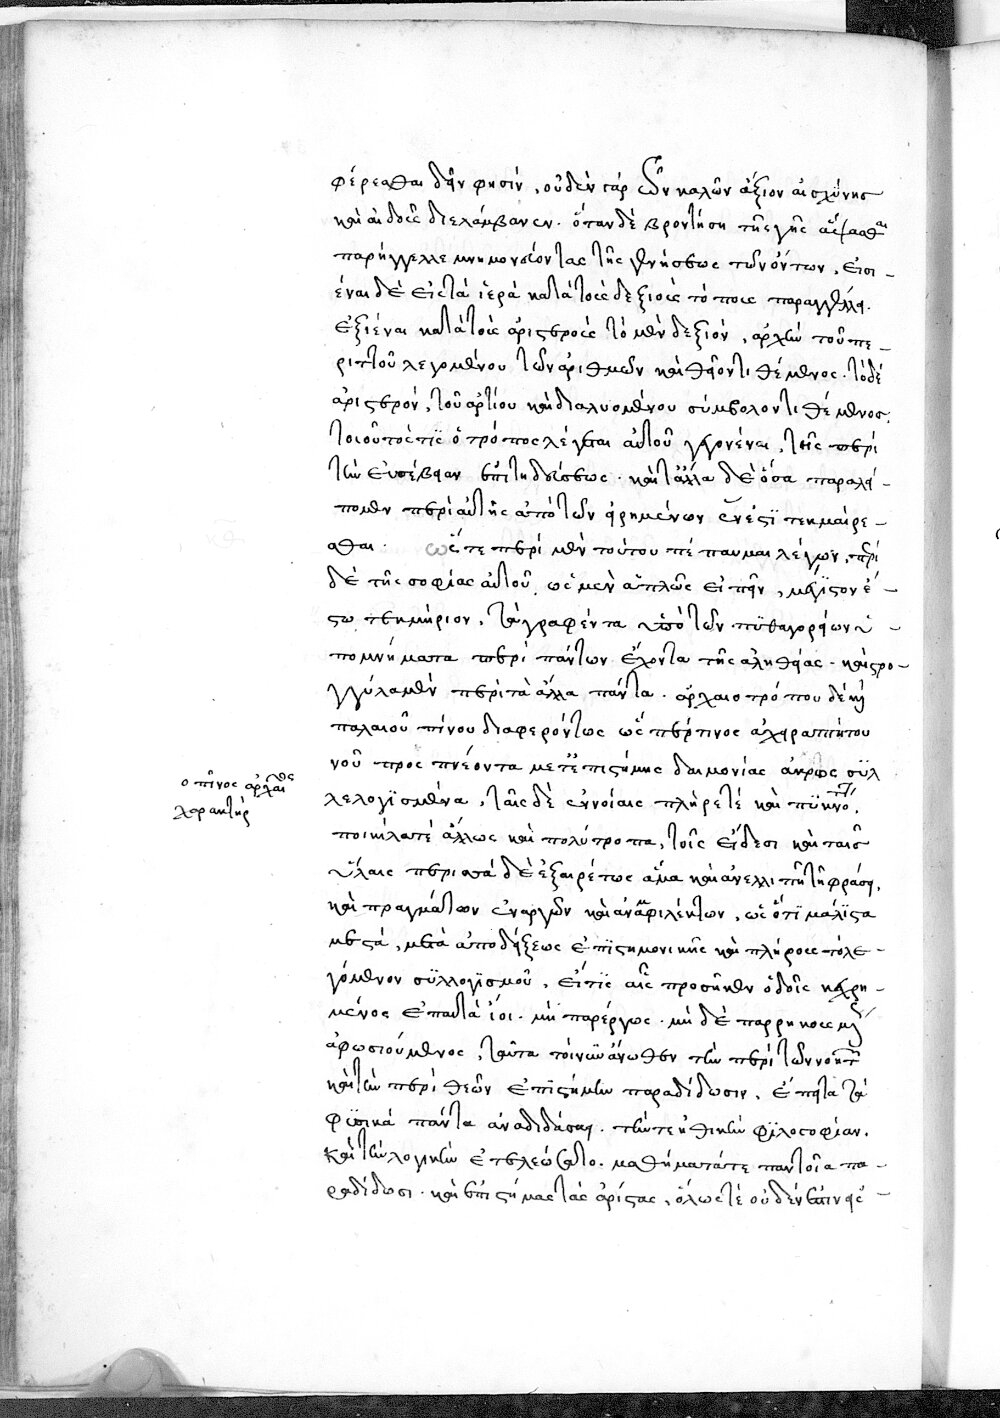 φέρεσθαι δεῖν φησίν, οὐδὲν γὰρ τῶν καλῶν ἄξιον αἰσχύνης
καὶ αἰδοῦς διελάμβανεν. ὅταν δὲ βροντήση τῆς γῆς ἅψασθαι
παρήγγελλε μνημονεύοντας τῆς γενέσεως τῶν ὄντων, εἰσι-
έναι δὲ εἰς τὰ ἱερὰ κατὰ τοὺς δεξιοὺς τόπους παραγγέλλει.
ἐξιέναι κατὰ τοὺς ἀριστεροὺς τὸ μὲν δεξιὸν, ἀρχὴν τοῦ πε-
ριττοῦ λεγομένου τῶν ἀριθμῶν καὶ θεῖον τιθέμενος. τὸ δὲ
ἀριστερὸν, τοῦ ἀρτίου καὶ διαλυομένου σύμβολον τιθέμενος.
τοιοῦτός τις ὁ τρόπος λέγεται αὐτοῦ γεγονέναι, τῆς περὶ
τὴν εὐσέβειαν ἐπιτηδεύσεως. καὶ τἄλλα δὲ ὅσα παραλεί-
πομεν περὶ αὐτῆς ἀπὸ τῶν εἰρημένων ἔνεστι τεκμαίρε-
σθαι. ὥστε περὶ μὲν τούτου πέπαυμαι λέγων, περὶ
δὲ τῆς σοφίας αὐτοῦ, ὡς μὲν ἁπλῶς εἰπεῖν, μέγιστον ἔ-
στω τεκμήριον, τὰ γραφέντα ὑπὸ τῶν πυθαγορείων ὑ-
πομνήματα περὶ πάντων ἔχοντα τῆς ἀληθείας. καὶ στρο-
γγύλα μὲν περὶ τὰ ἄλλα πάντα. ἀρχαιοτρόπου δὲ καὶ
παλαιοῦ πίνου διαφερόντως ὥσπερ τινος ἀχειραπτήτου
νοῦ προσπνέοντα μετ' ἐπιστήμης δαιμονίας ἄκρως συλ
λελογισμένα, ταῖς δὲ ἐννοίαις πλήρε τὲ καὶ πυκνό.
ποικίλα τὲ ἄλλως καὶ πολύτροπα, τοῖς εἴδεσι καὶ ταῖς
ὕλαις περισσὰ δὲ ἐξαιρέτως ἅμα καὶ ἀνελλιπῆ τῆ φράσει,
καὶ πραγμάτων ἐναργῶν καὶ ἀναμφιλέκτων, ὡς ὅτι μάλιστα
μεστά, μετὰ ἀποδείξεως ἐπιστημονικῆς καὶ πλήρους τὸ λε-
γόμενον συλλογισμοῦ, εἴ τις αἷς προσῆκεν ὁδοῖς κεχρη-
μένος ἐπ' αὐτὰ ἴοι. μὴ παρέργως. μὴ δὲ παρηκουσμ
ἀφωσιούμενος, ταῦτα τοίνυν ἄνωθεν τὴν περὶ τῶν νοητῶν
καὶ τὴν περὶ θεῶν ἐπιστήμην παραδίδωσιν. ἔπειτα τὰ
φυσικὰ πάντα ἀναδιδάσκει. τήν τε ἠθικὴν φιλοσοφίαν.
καὶ τὴν λογικὴν ἐτελεώσατο. μαθήματά τε παντοῖα πα-
ραδίδωσι. καὶ ἐπιστήμας τὰς ἀρίστας. ὅλως τὲ οὐδέν ἐστιν εἰς
ὁ πῖνος ἀρχαῖος
χαρακτήρ